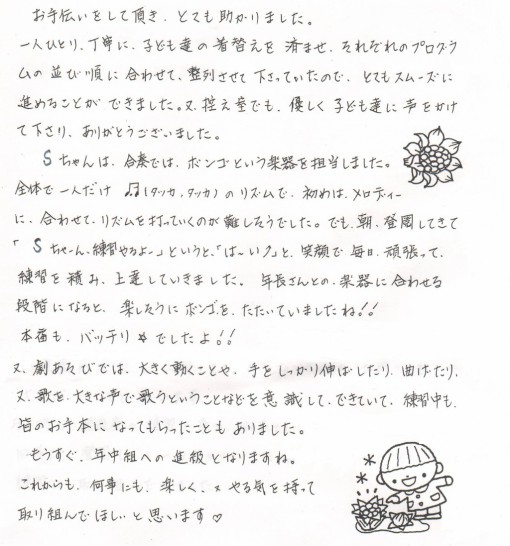 お手伝いをして頂き、とても助かりました。
一人ひとり、丁寧に、子ども達の着替えを 済ませ、それぞれのプログラ
ムの並び順に 合わせて、整列させて 下さっていたので、とてもスムーズに
進めることが できました。又、控え室でも、優しく 子ども達に 声をかけ
て下さり、ありがとうございました。
Sちゃんは、合奏では、ボンゴという楽器を担当しました。
全体で一人だけ ♫(タッカ、タッカ)の リズムで、初めは、メロディー
に、合わせて、リズムを打っていくのが 難しそうでした。でも、朝、登園してきて
「Sちゃーん、練習やるよー」というと、「はーい♪」と、笑顔で 毎日、頑張って、
練習を 積み、上達していきました。 年長さんとの、楽器に合わせる
段階になると、楽しそうに ボンゴを、たたいていましたね!!
本番も、バッチリ☆でしたよ!!
又、劇あそびでは、大きく動くことや、手をしっかり伸ばしたり、曲げたり、
又、歌を、大きな声で歌うということなどを意識して、できていて、練習中も、
皆のお手本に なってもらったことも ありました。
もうすぐ、年中組への 進級となりますね。
これからも、何事にも、楽しく、又 やる気を持って
取り組んでほしいと思います♡